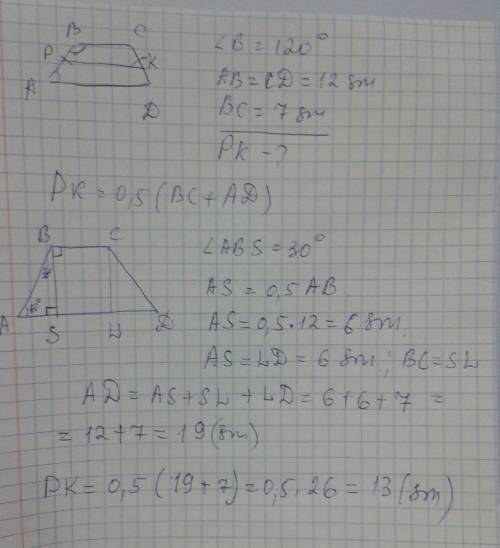 B C
P K
A D
∠B = 120°
AB = CD = 12 sm
BC = 7 sm
PK - ?
PK = 0,5 (BC + AD)
B C
A S L D
∠ABS = 30°
AS = 0,5 AB
AS = 0,5 · 12 = 6 sm.
AS = LD = 6 sm; BC = SL
AD = AS + SL + LD = 6 + 6 + 7 =
= 12 + 7 = 19 (sm)
PK = 0,5 (19 + 7) = 0,5 · 26 = 13 (sm)